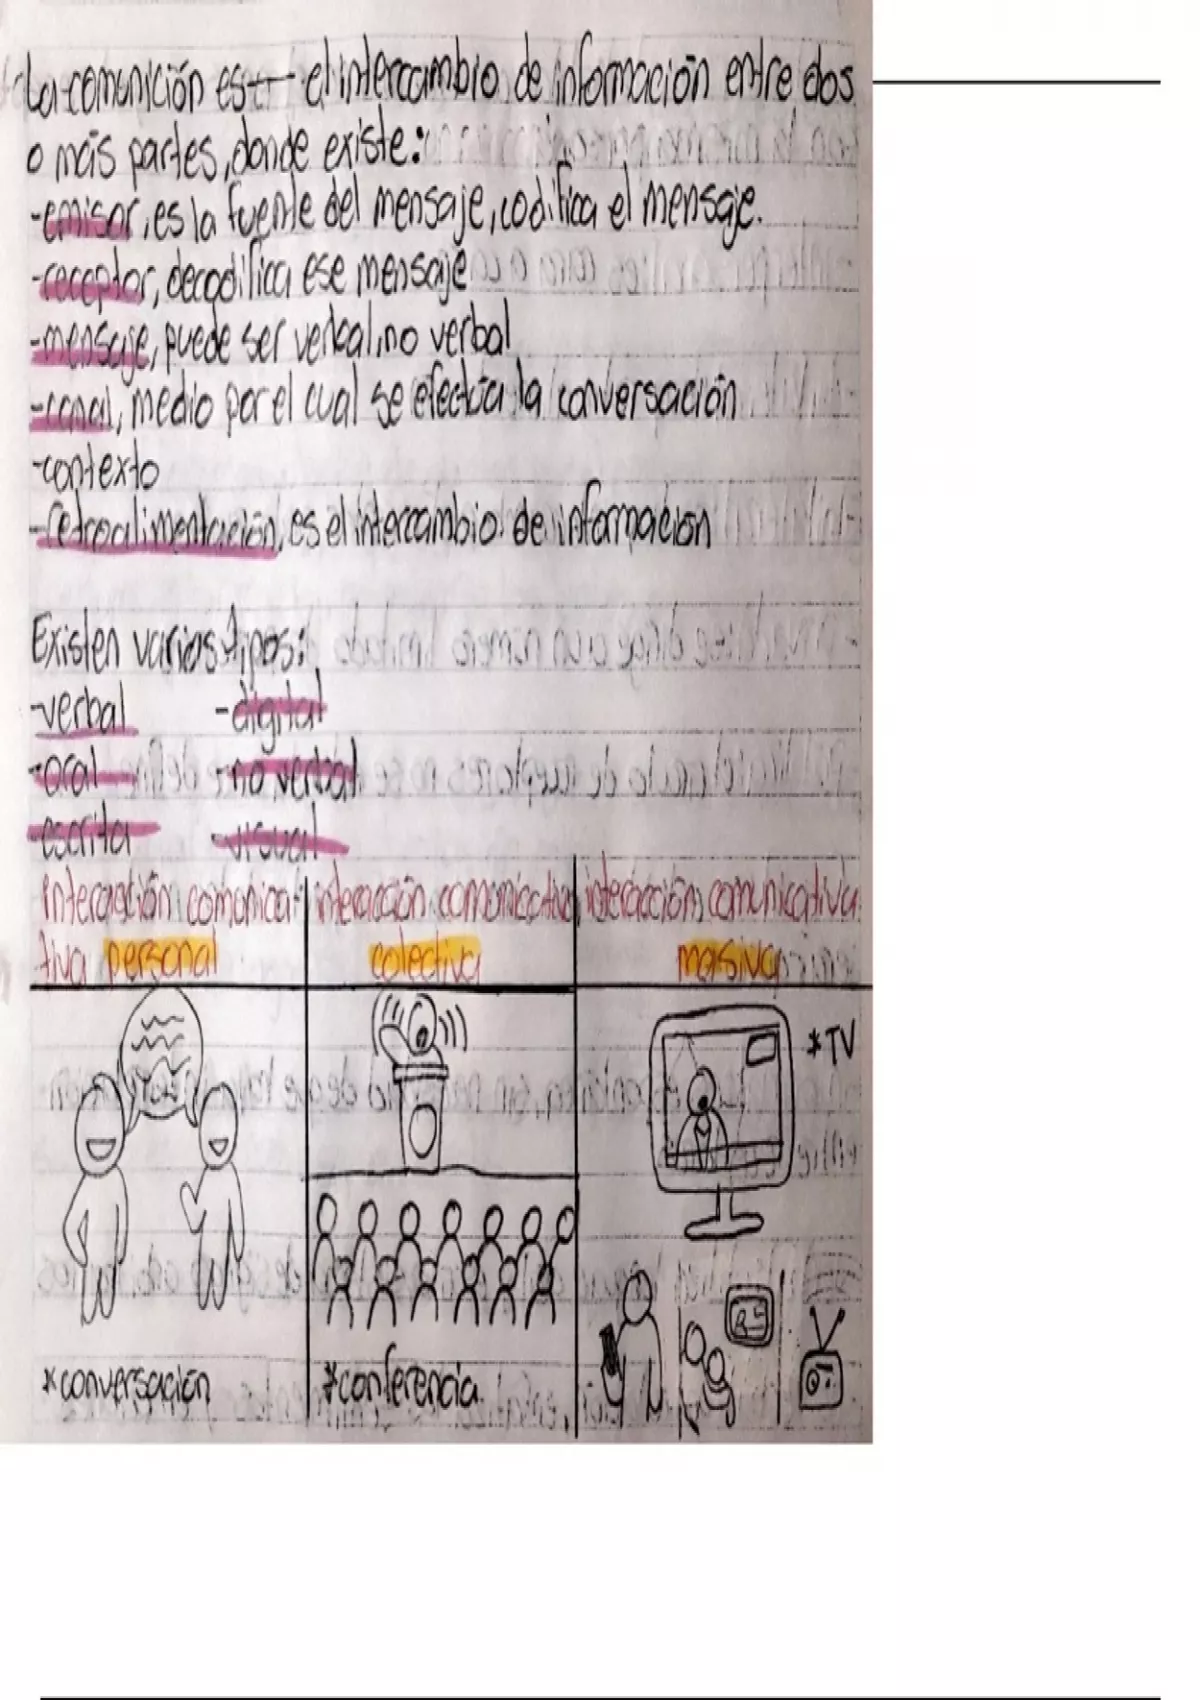 La comunición es el intercambio de información entre dos
o más partes, donde existe:
-emisor, es la fuente del mensaje, codifica el mensaje.
-receptor, decodifica ese mensaje
-mensaje, puede ser verbal, no verbal
-canal, medio por el cual se efectúa la conversación
-contexto
-retroalimentación, es el intercambio de información
Existen varios tipos:
-verbal -digital
-oral -no verbal
-escrita -visual
interacción comunica- interacción comunicativa interacción comunicativa
tiva personal colectiva masiva
*TV
*conversación *conferencia